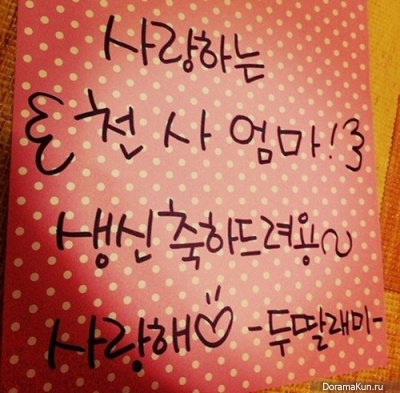 사랑하는
천사 엄마!
생신축하드려용~
사랑해♡ -두딸래미-
DoramaKun.ru